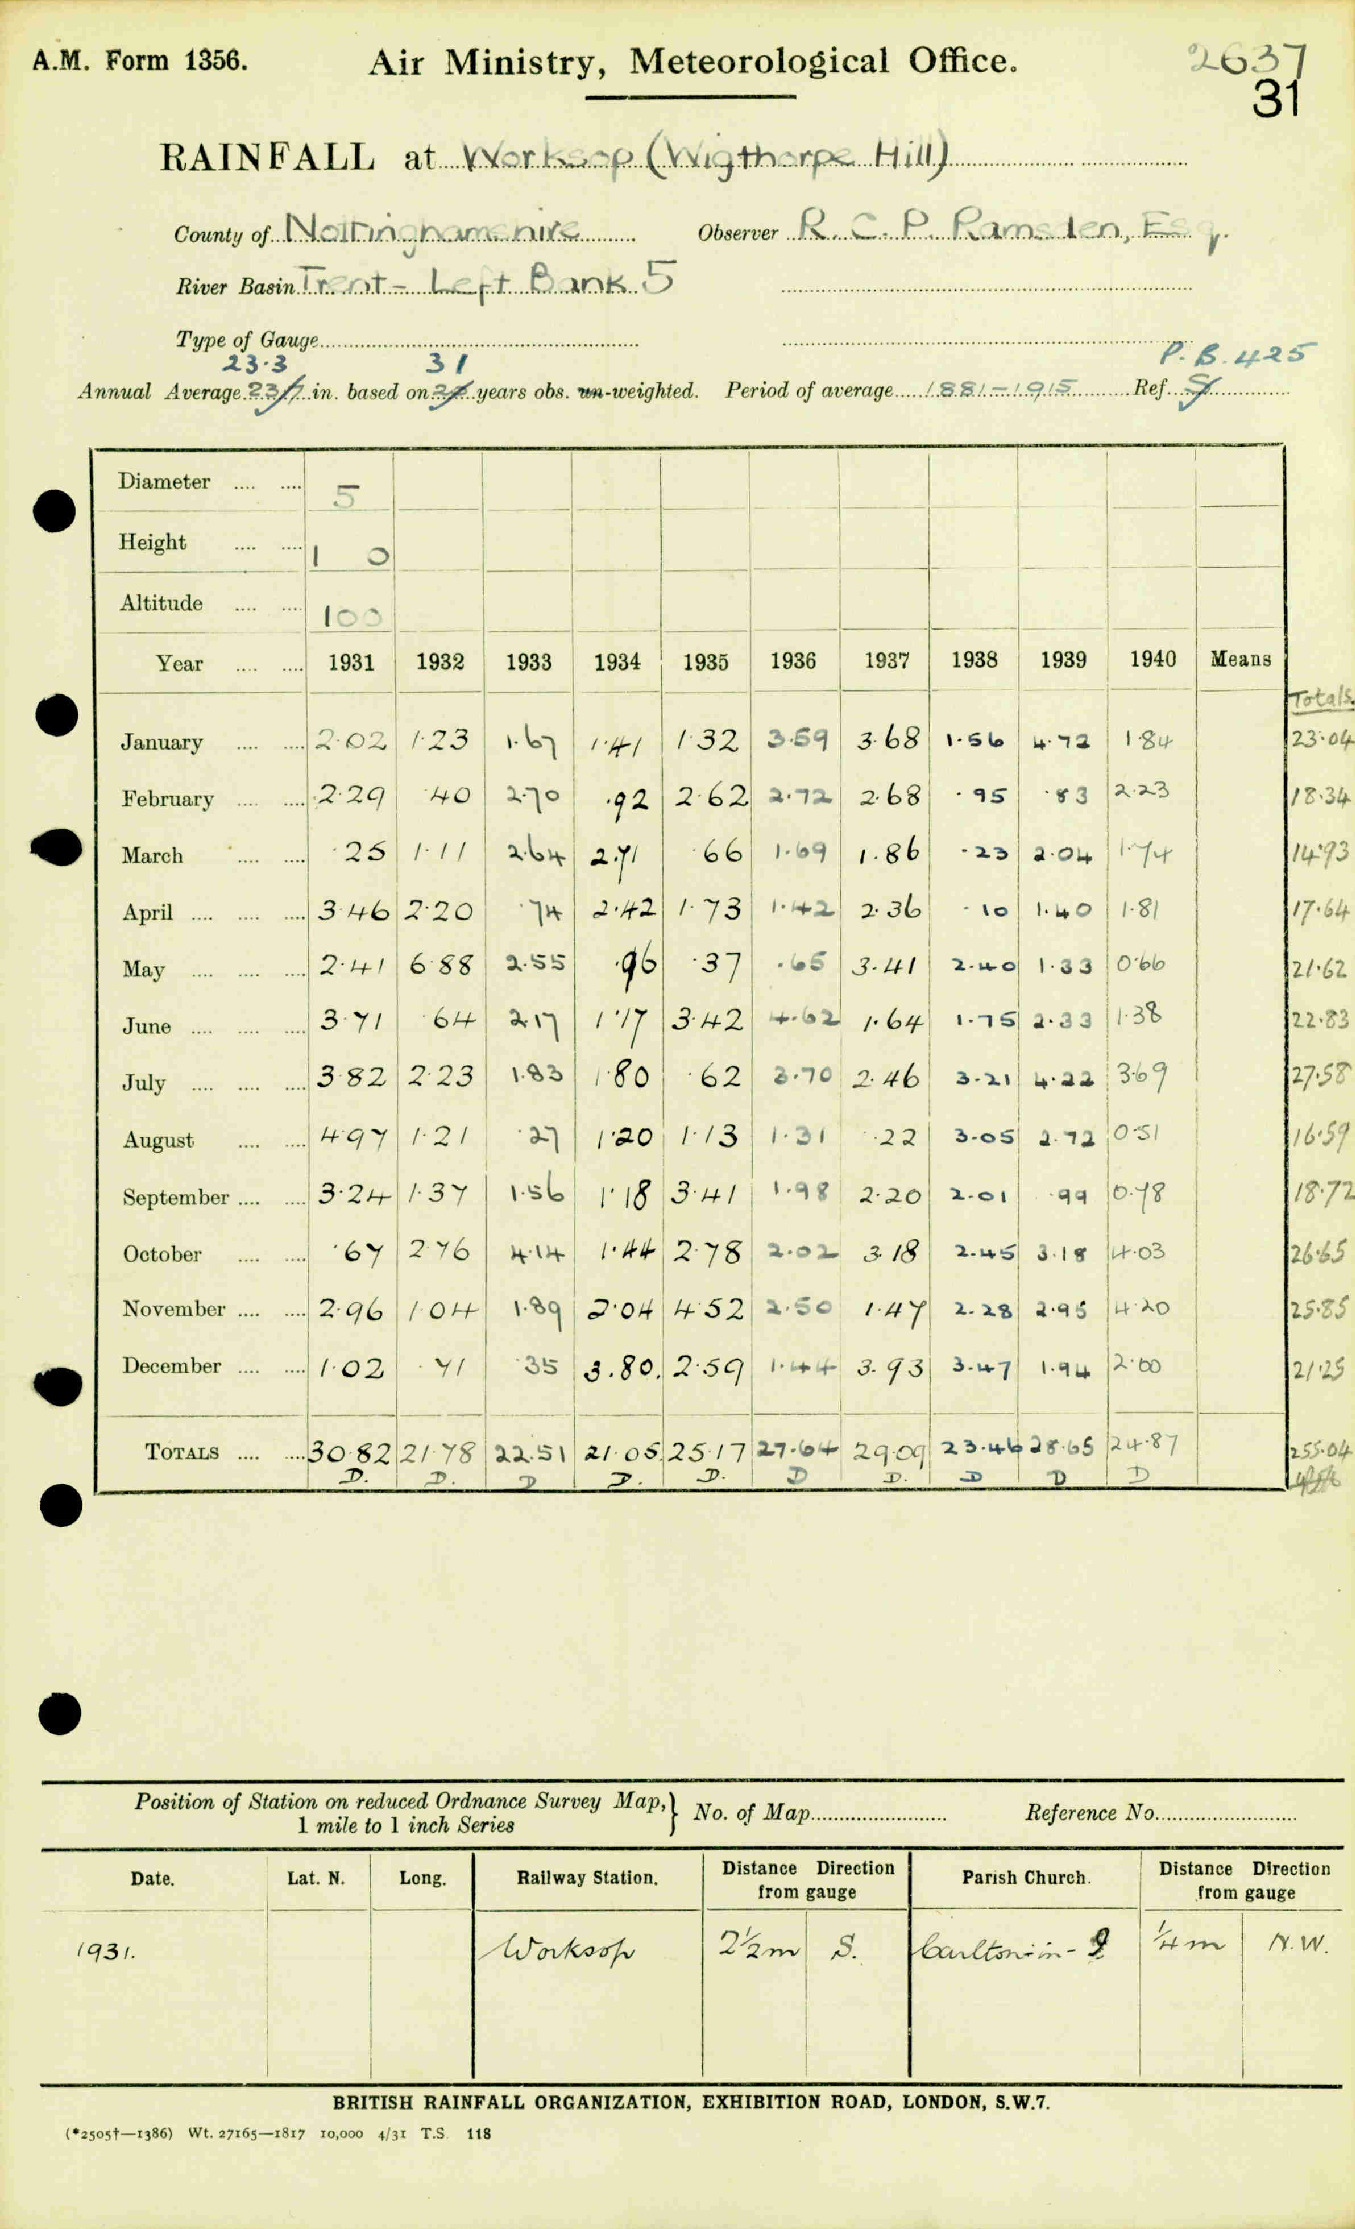 A.M. Form 1356. Air Ministry, Meteorological Office. 2637
31
RAINFALL at Worksop (Wigthorpe Hill)
County of Nottinghamshire Observer R. C. P. Ramsden, Esq.
River Basin Trent - Left Bank 5
Type of Gauge
23.3 31 P. B. 425
Annual Average in. based on years obs. un-weighted. Period of average 1881-1915 Ref.
Diameter 5
Height 1 0
Altitude 100
Year 1931 1932 1933 1934 1935 1936 1937 1938 1939 1940 Means
Totals
January 2.02 1.23 1.67 1.41 1.32 3.59 3.68 1.56 4.72 1.84 23.04
February 2.29 .40 2.70 .92 2.62 2.72 2.68 .95 .83 2.23 18.34
March .25 1.11 2.64 2.71 .66 1.69 1.86 .23 2.04 1.74 14.93
April 3.46 2.20 .74 2.42 1.73 1.42 2.36 .10 1.40 1.81 17.64
May 2.41 6.88 2.55 .96 .37 .65 3.41 2.40 1.33 0.66 21.62
June 3.71 .64 2.17 1.17 3.42 4.62 1.64 1.75 2.33 1.38 22.83
July 3.82 2.23 1.83 1.80 .62 3.70 2.46 3.21 4.22 3.69 27.58
August 4.97 1.21 .27 1.20 1.13 1.31 .22 3.05 2.72 0.51 16.59
September 3.24 1.37 1.56 1.18 3.41 1.98 2.20 2.01 .99 0.78 18.72
October .67 2.76 4.14 1.44 2.78 2.02 3.18 2.45 3.18 4.03 26.65
November 2.96 1.04 1.89 2.04 4.52 2.50 1.47 2.28 2.95 4.20 25.85
December 1.02 .71 .35 3.80 2.59 1.44 3.93 3.47 1.94 2.00 21.25
TOTALS 30.82 21.78 22.51 21.05 25.17 27.64 29.09 23.46 28.65 24.87 255.04
D. D. D D. D. D D. D D D
Position of Station on reduced Ordnance Survey Map, No. of Map Reference No.
1 mile to 1 inch Series
Date. Lat. N. Long. Railway Station. Distance Direction from gauge Parish Church. Distance Direction from gauge
1931. Worksop 2½m S. Carlton-in- ¼m N.W.
BRITISH RAINFALL ORGANIZATION, EXHIBITION ROAD, LONDON, S.W.7.
(*2505†—1386) Wt. 27165—1817 10,000 4/31 T.S. 118